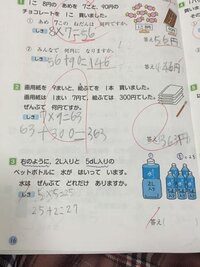 1こ 8円の あめを 7こと、90円の
チョコレートを 1こ 買いました。
① あめ 7この ねだんは 何円ですか。
しき 8×7=56
答え 56円
② みんなで 何円に なりますか。
しき 56+90=146
答え 146円
2 画用紙を 9まいと、絵ふでを 1本 買いました。
画用紙は 1まい 7円で、絵ふでは 300円でした。
ぜんぶで 何円ですか。
しき 7×9=63
63+300=363
答え 363円
3 右のように、2L入りと 5dL入りの
ペットボトルに 水が はいって います。
水は ぜんぶで どれだけ ありますか。
しき 5×5=25
25+2=27
答え
16